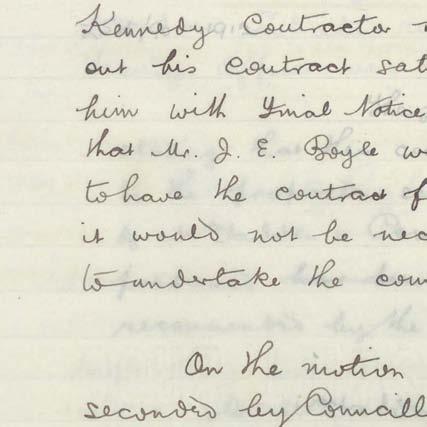 Kennedy Contractor
out his contract sat
him with Final Notice
that Mr. J. E. Boyle w
to have the contract f
it would not be nec
to undertake the com
On the motion
seconded by Connall